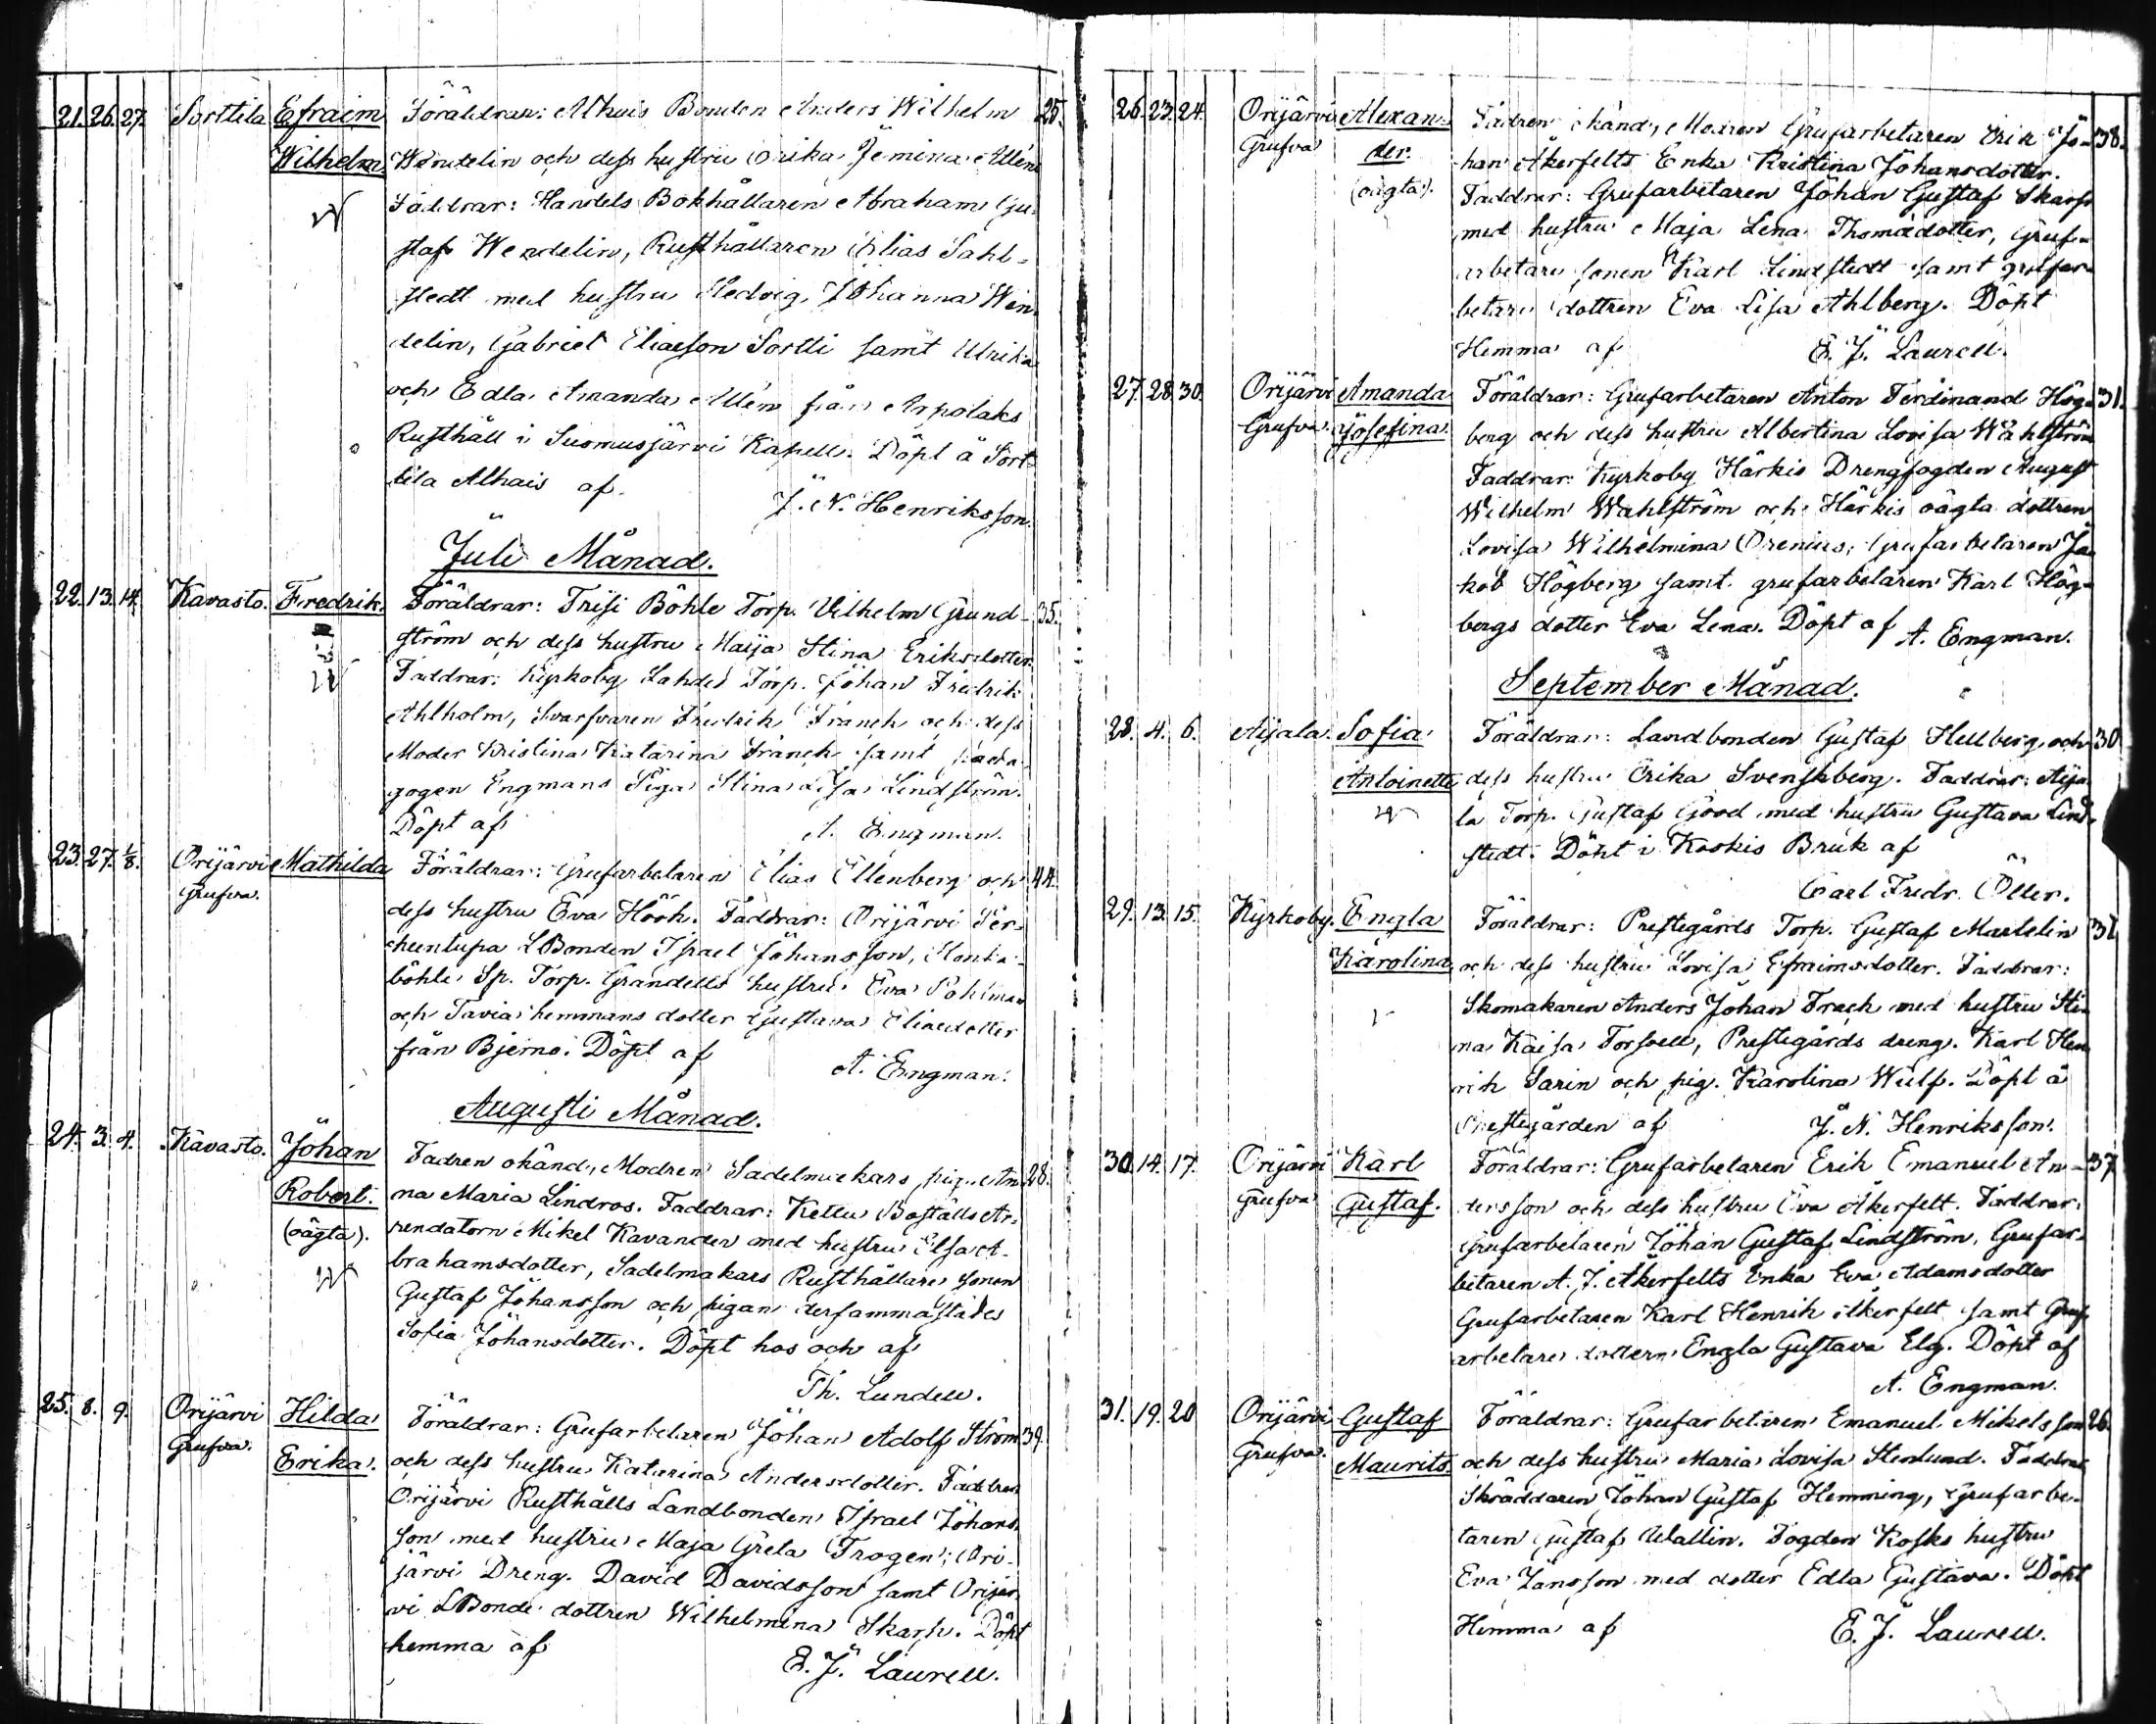 21. 26. 27. Sorttila Efraim Wilhelm
Föräldrar: Althuis Bonden Anders Wilhelm 25.
Wendelin och dess hustru Erika Jemina Allén
Faddrar: Handels Bokhållaren Abraham Gu-
staf Wendelin, Rusthållaren Elias Sahl-
stedt med hustru Hedvig Johanna Wen-
delin, Gabriel Eliasson Sortti samt Ulrika
och Edla Amanda Allén från Arpalaks
Rusthåll i Suomusjärvi Kapell. Döpt å Sort-
tila Alhais af
J. N. Henriksson.
Juli Månad.
22. 13. 14. Kavasto. Fredrik.
Föräldrar: Trysi Böhle Torp. Vilhelm Grund- 35.
ström och dess hustru Maija Stina Eriksdotter.
Faddrar: Kyrkoby Lahdes Torp. Johan Fredrik
Ahlholm, Svarfvaren Fredrik Franck och dess
Moder Kristina Katarina Franck samt pæda-
gogen Engmans Piga Stina Lisa Lindström.
Döpt af
A. Engman.
23. 27. 1/8. Orijärvi Grufva. Mathilda
Föräldrar: Grufarbetaren Elias Ellenberg och 44.
dess hustru Eva Höök. Faddrar: Orijärvi Per-
heentupa LBonden Israel Johansson, Honka-
böhle Sp. Torp. Grandells hustru Eva Pohlman
och Tavia hemmans dotter Gustava Eliaedotter
från Bjerno. Döpt af
A. Engman.
Augusti Månad.
24. 3. 4. Kavasto. Johan Robert. (oägta).
Fadren okänd, Modren Sadelmakars pigan An- 28.
na Maria Lindros. Faddrar: Kettu Boställs Ar-
rendatorn Mikel Kavander med hustru Elsa A-
brahamsdotter, Sadelmakars Rusthållare sonen
Gustaf Johansson och pigan dersammastädes
Sofia Johansdotter. Döpt hos och af
Th. Lundell.
25. 8. 9. Orijärvi Grufva. Hilda Erika.
Föräldrar: Grufarbetaren Johan Adolf Ström 39.
och dess hustru Katarina Andersdotter. Faddrar
Orijärvi Rusthålls Landbonden Israel Johans-
son med hustru Maja Greta Trogen, Ori-
järvi Dreng. David Davidsson samt Orijär-
vi LBonde dottren Wilhelmina Skarp. Döpt
hemma af
E. J. Laurell.
26. 23. 24. Orijärvi Grufva Alexan-der. (oägta).
Fadren okänd, Modren Grufarbetaren Erik Jo- 38.
han Åkerfelts Enka Kristina Johansdotter.
Faddrar: Grufarbetaren Johan Gustaf Skarp
med hustru Maja Lena Thomædotter, Gruf-
arbetare sonen Karl Lindstedt samt grufar-
betare dottren Eva Lisa Ahlberg. Döpt
Hemma af E. J. Laurell.
27. 28. 30. Orijärvi Grufva. Amanda Josefina.
Föräldrar: Grufarbetaren Anton Ferdinand Hög- 31.
berg och dess hustru Albertina Lovisa Wahlström
Faddrar: Kyrkoby Härkis Drengfogden August
Wilhelm Wahlström och Härkis oägta dottren
Lovisa Wilhelmina Orenius, Grufarbetaren Ja-
kob Högberg samt grufarbetaren Karl Hög-
bergs dotter Eva Lena. Döpt af A. Engman.
September Månad.
28. 4. 6. Aijala. Sofia Antoinette
Föräldrar: Landbonden Gustaf Hellberg och 30
dess hustru Erika Svenskberg. Faddrar: Aija-
la Torp. Gustaf Good med hustru Gustava Lind-
stedt. Döpt i Koskis Bruk af
Carl Fredr. Öller.
29. 13. 15. Kyrkoby. Engla Karolina
Föräldrar: Prestegårds Torp. Gustaf Martelin 31
och dess hustru Lovisa Efraimsdotter. Faddrar:
Skomakaren Anders Johan Frach med hustru Sti-
na Kaisa Forsvell, Prestegårds dreng. Karl Hen-
rik Sarin och pig. Karolina Wulf. Döpt å
Prestegården af J. N. Henriksson.
30. 14. 17. Orijärvi Grufva Karl Gustaf.
Föräldrar: Grufarbetaren Erik Emanuel An- 37
dersson och dess hustru Eva Åkerfelt. Faddrar:
Grufarbetaren Johan Gustaf Lindström, Grufar-
betaren A. J. Åkerfelts Enka Eva Adamsdotter
Grufarbetaren Karl Henrik Åkerfelt samt Gruf-
arbetare dottern Engla Gustava Elg. Döpt af
A. Engman.
31. 19. 20 Orijärvi Grufva. Gustaf Maurits.
Föräldrar: Grufarbetaren Emanuel Mikelsson 26.
och dess hustru Maria Lovisa Stenlund. Faddrar
Skräddaren Johan Gustaf Hemming, Grufarbe-
taren Gustaf Wallin. Fogden Kosks hustru
Eva Jansson med dotter Edla Gustava. Döpt
Hemma af E. J. Laurell.